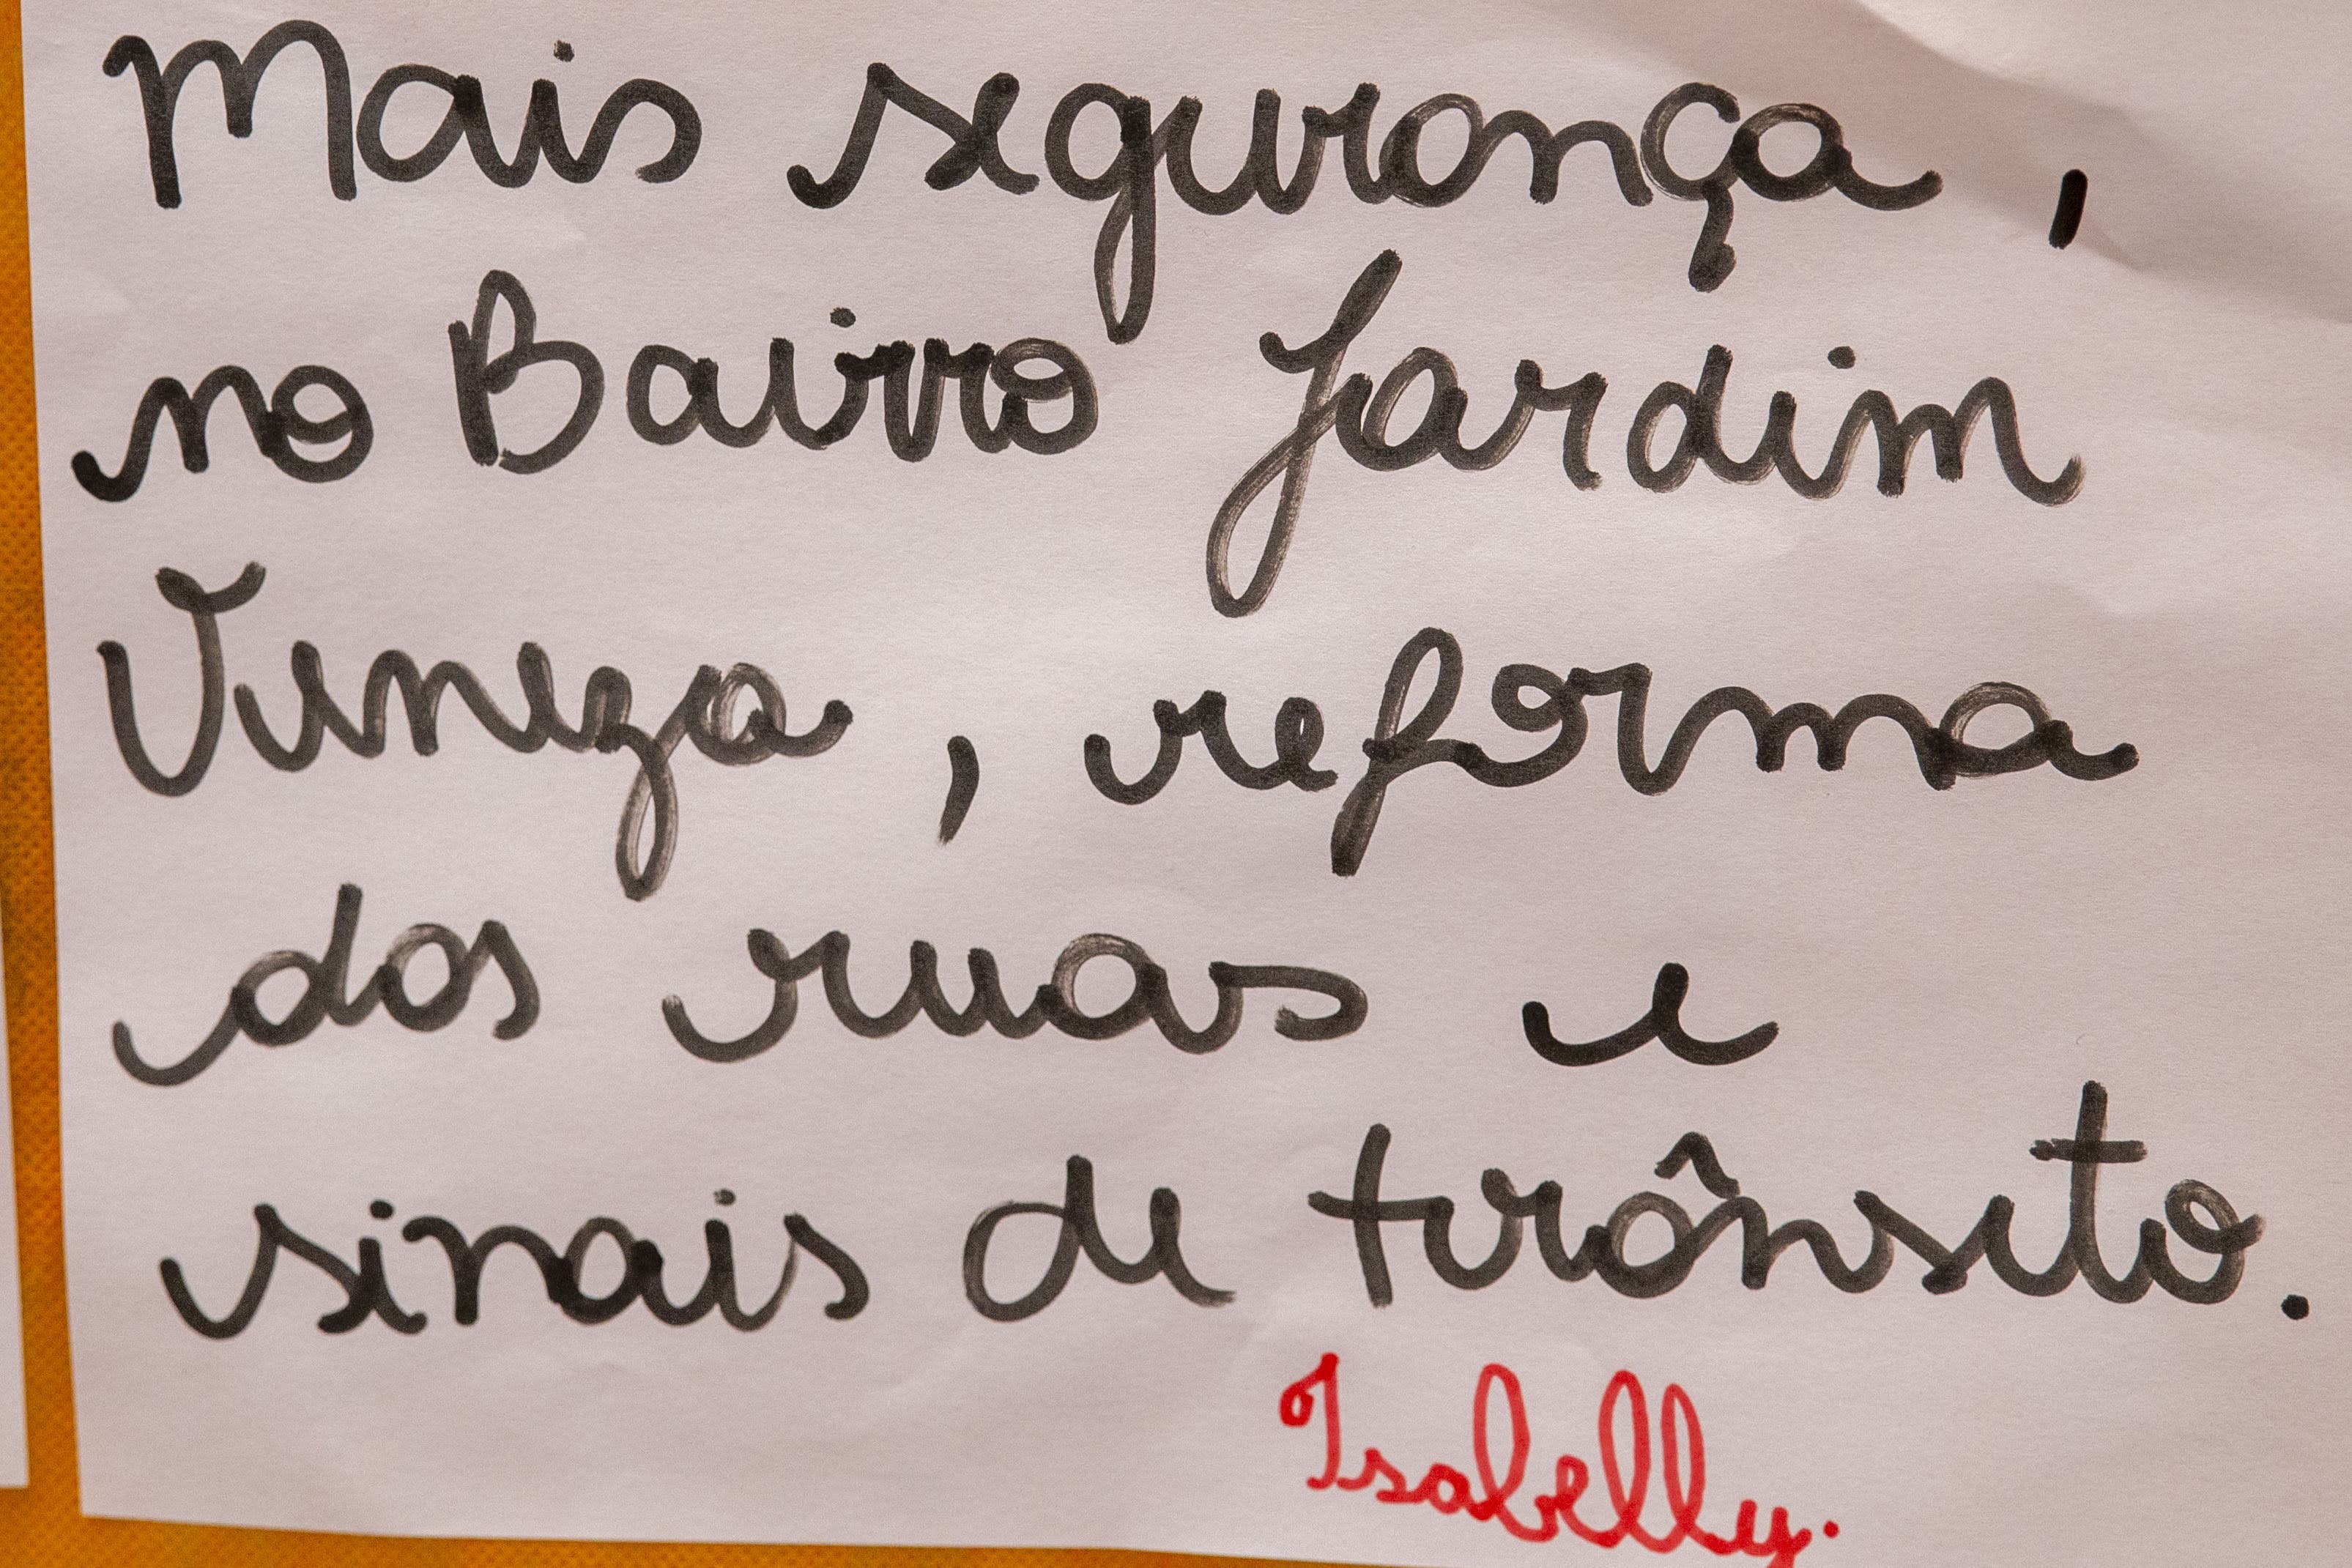 Mais segurança,
no Bairro Jardim
Veneza, reforma
das ruas e
sinais de trânsito.
Isabelly.